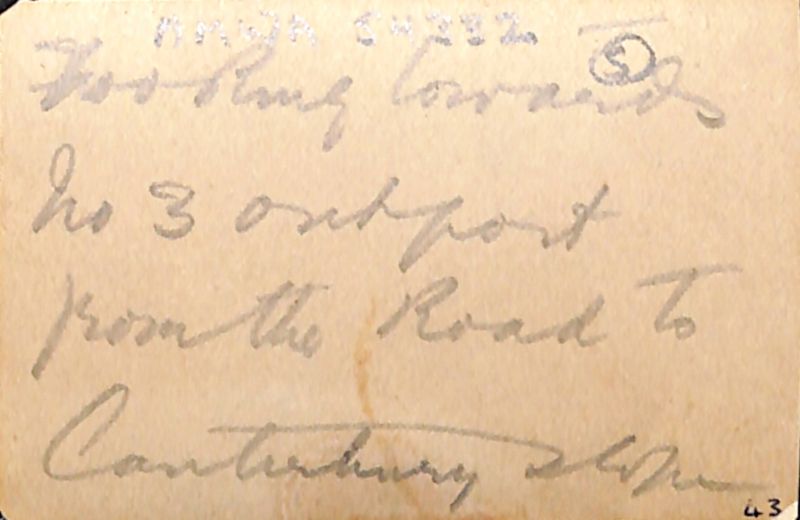 5
Looking towards
No 3 outpost
from the Road to
Canterbury slope
43